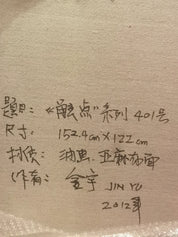 题目：《触点》系列 401号
尺寸：152.4cm×122cm
材质：油画.亚麻布面
作者：金宇 JIN YU
2012年